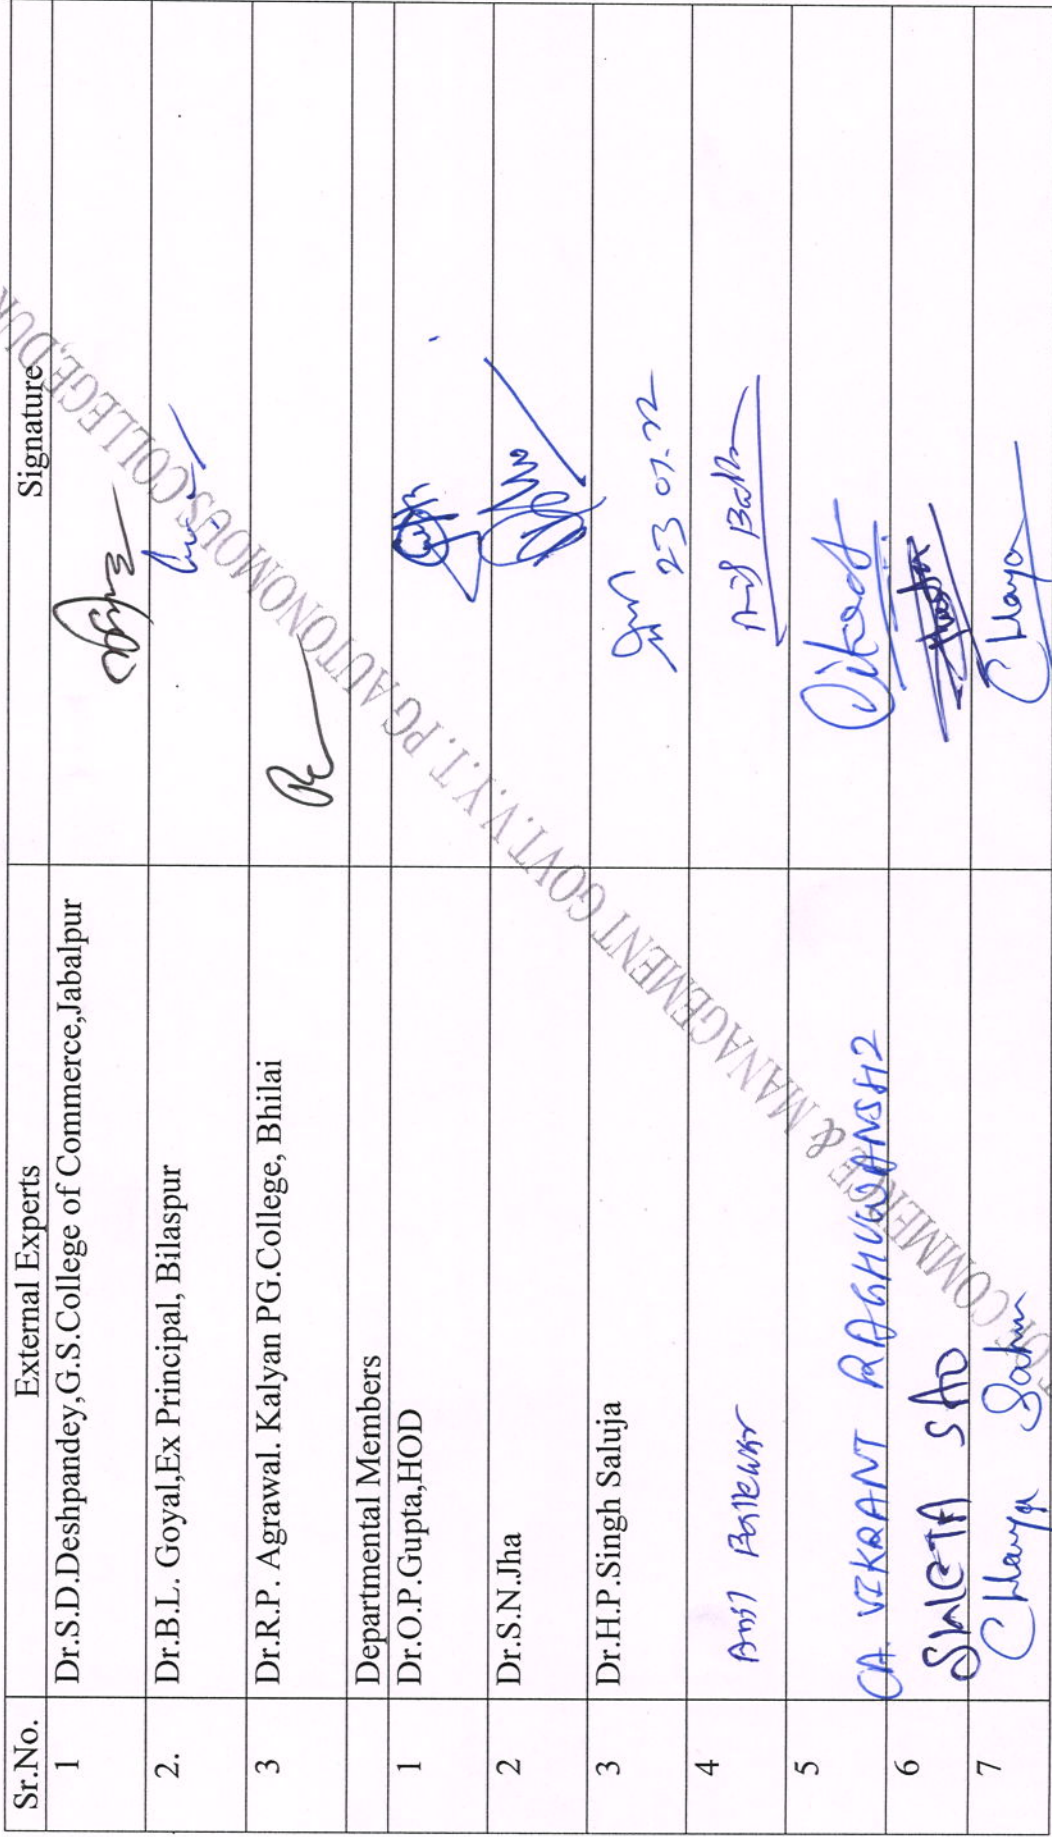 Sr.No. External Experts Signature
1 Dr.S.D.Deshpandey,G.S.College of Commerce,Jabalpur
2. Dr.B.L. Goyal,Ex Principal, Bilaspur
3 Dr.R.P. Agrawal. Kalyan PG.College, Bhilai
Departmental Members
1 Dr.O.P.Gupta,HOD
2 Dr.S.N.Jha
3 Dr.H.P.Singh Saluja 23 07.22
4
5 CA. VIKRANT RAGHUWANSHI
6 SHWETA SAO
7 Chhaya Sahu Chhaya
OF COMMERCE & MANAGEMENT GOVT.V.Y.T. PG AUTONOMOUS COLLEGE,DUR